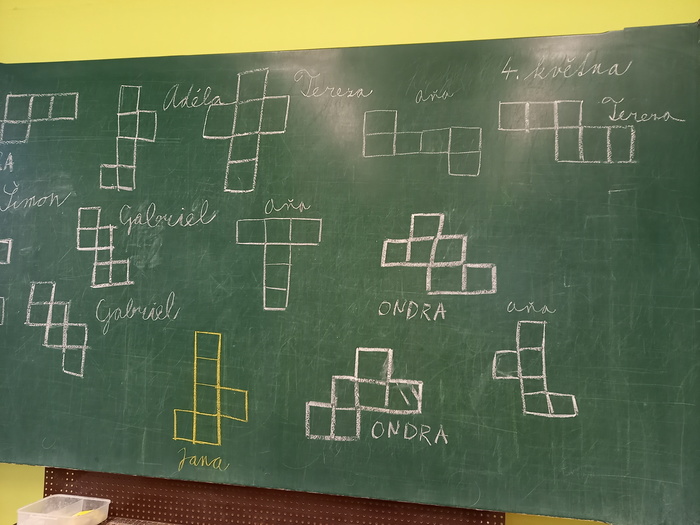 4. května
Adéla
Tereza
aňa
Tereza
RA
Šimon
Gabriel
aňa
Gabriel
ONDRA
aňa
ONDRA
Jana